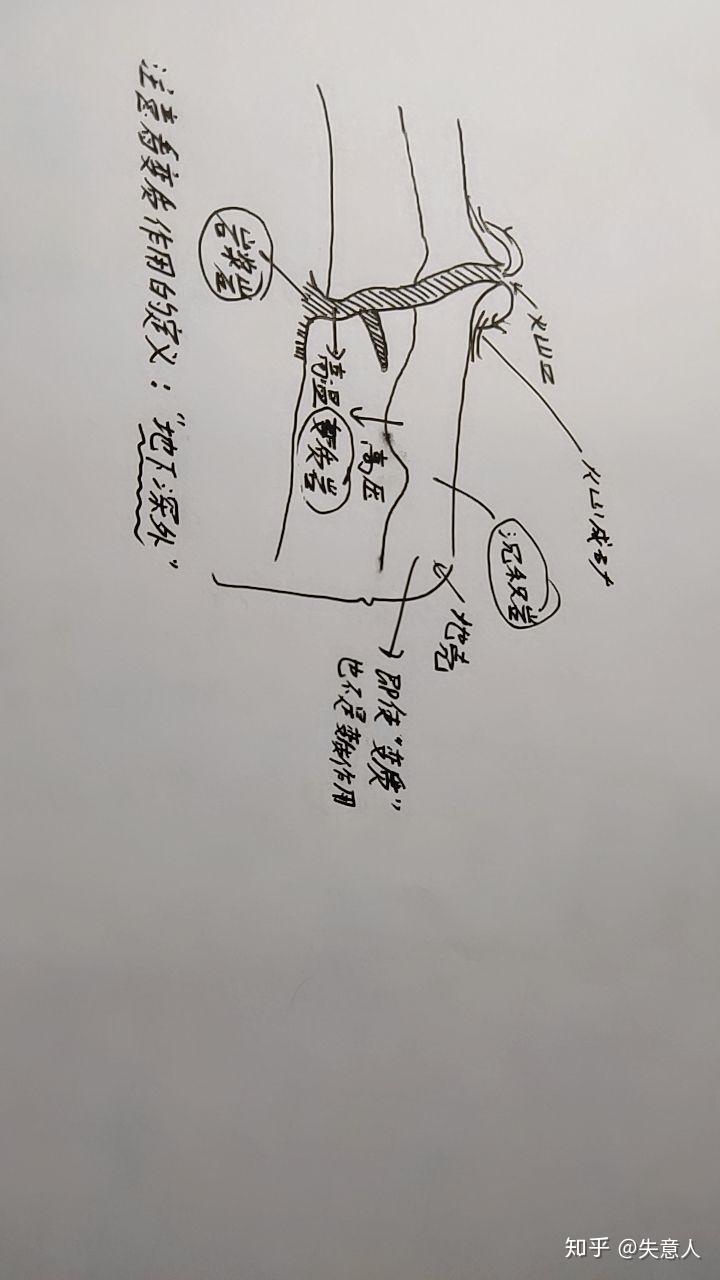 火山口
火山成矿
沉积岩
地壳
高压
高温
变质岩
岩浆岩
即使“变质”
也不是变质作用
注意看变质作用的定义：“地下深处”
知乎 @失意人